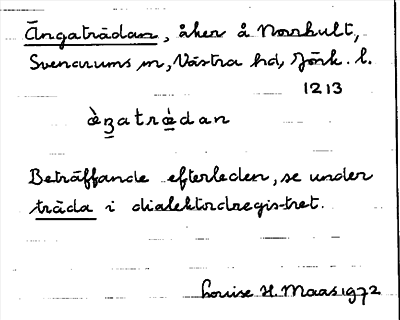 Ängaträdan, åker å Norrhult,
Svenarums sn, Västra hd, Jönk. l.
1213
ὲʒatrὲdan
Beträffande efterleden, se under
träda i dialektordregistret.
Louise H. Maas 1972